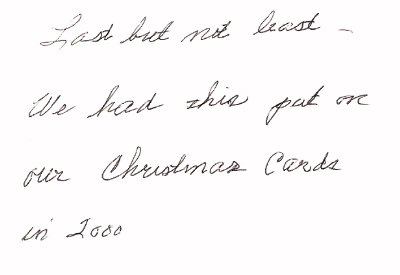 Last but not least -
We had this put on
our Christmas Cards
in 2000